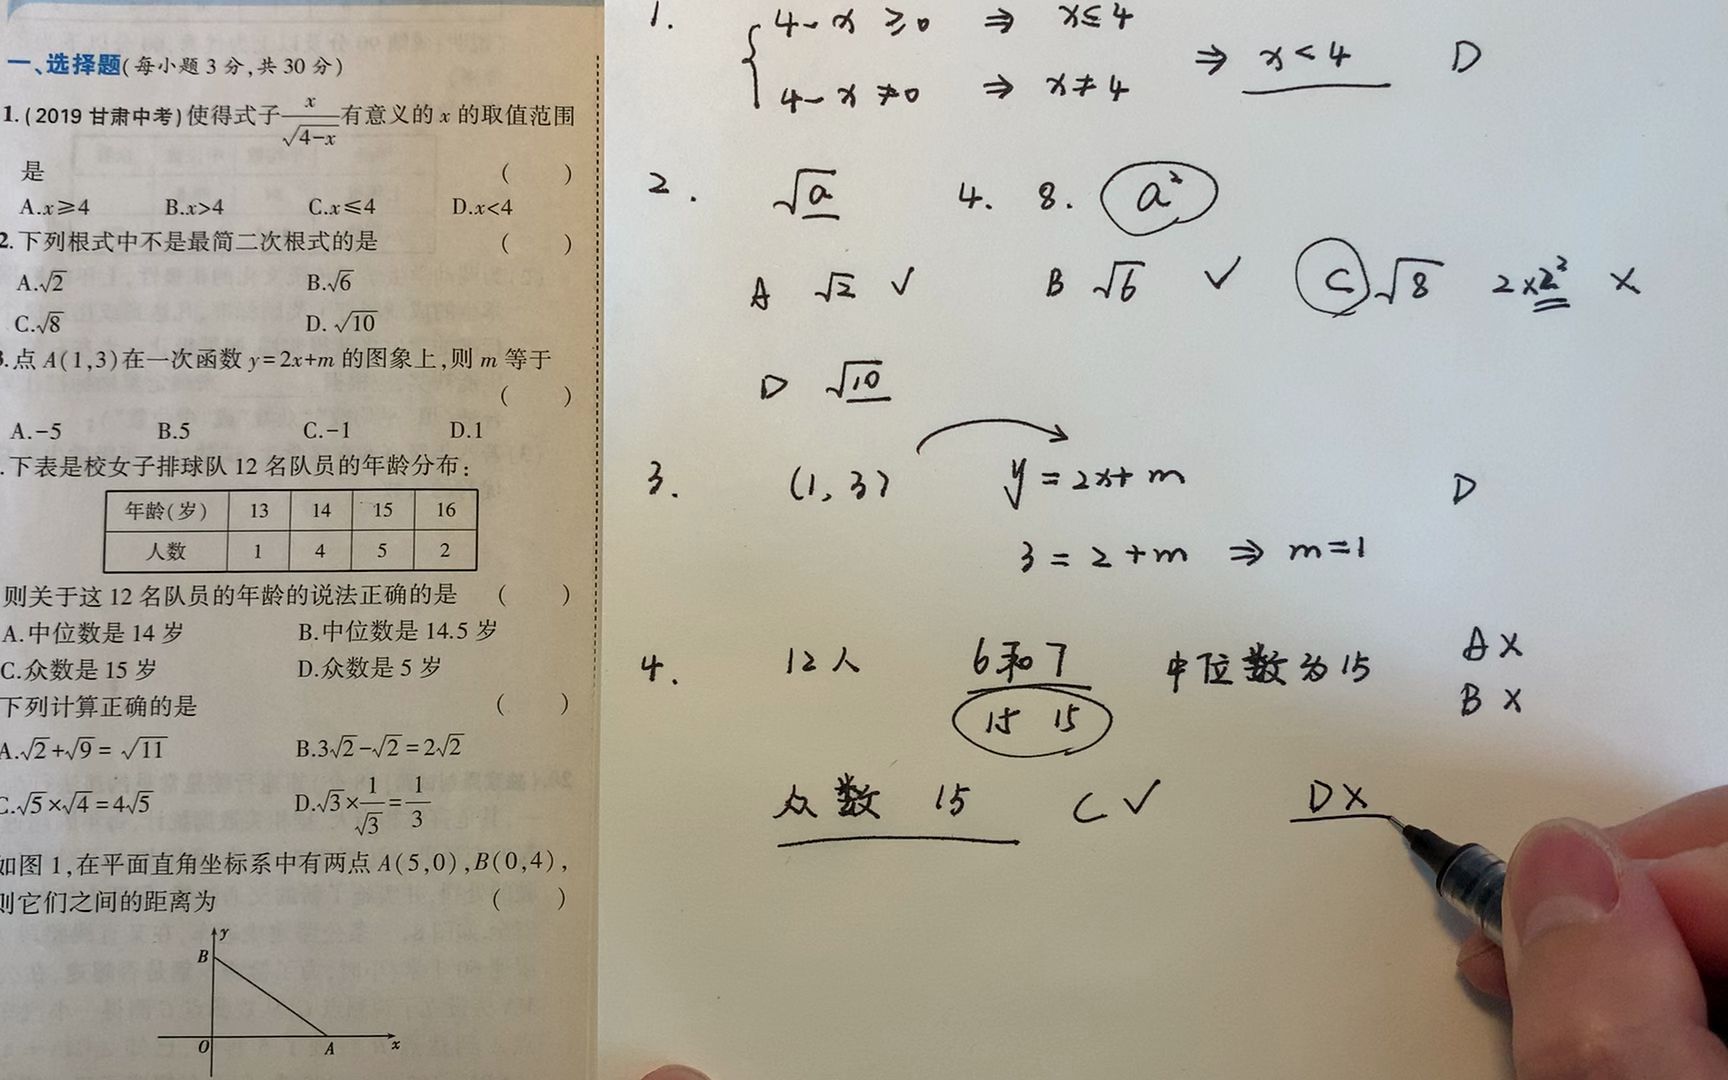 一、选择题(每小题3分,共30分)
1.(2019甘肃中考)使得式子x/√(4-x)有意义的x的取值范围
是 ( )
A.x≥4 B.x>4 C.x≤4 D.x<4
2.下列根式中不是最简二次根式的是 ( )
A.√2 B.√6
C.√8 D.√10
3.点A(1,3)在一次函数y=2x+m的图象上,则m等于
( )
A.-5 B.5 C.-1 D.1
.下表是校女子排球队12名队员的年龄分布:
年龄(岁) 13 14 15 16
人数 1 4 5 2
则关于这12名队员的年龄的说法正确的是 ( )
A.中位数是14岁 B.中位数是14.5岁
C.众数是15岁 D.众数是5岁
下列计算正确的是 ( )
A.√2+√9=√11 B.3√2-√2=2√2
C.√5×√4=4√5 D.√3×1/√3=1/3
如图1,在平面直角坐标系中有两点A(5,0),B(0,4),
则它们之间的距离为 ( )
y
B
O A x
1. 4-x≥0 ⇒ x≤4
⇒ x<4 D
4-x≠0 ⇒ x≠4
2. √a 4. 8. a²
A √2 ✓ B √6 ✓ C √8 2×2² ×
D √10
3. (1,3) y=2x+m D
3=2+m ⇒ m=1
4. 12人 6和7 中位数为15 A×
15 15 B×
众数 15 C✓ D×